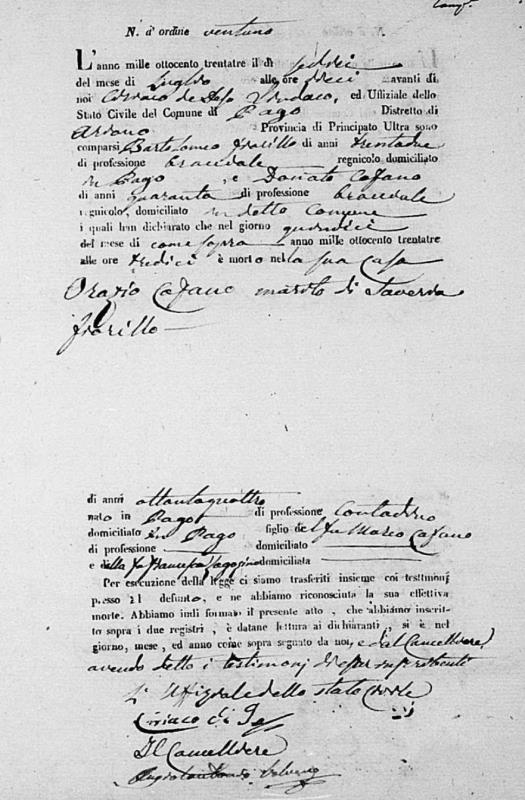 N. d' ordine ventuno
L'anno mille ottocento trentatre il dì sedici
del mese di Luglio alle ore dieci avanti di
noi Ciriaco de Sindaco, ed Uffiziale dello
Stato Civile del Comune di Pago Distretto di
Ariano Provincia di Principato Ultra sono
comparsi Bartolomeo Fiorillo di anni trentadue
di professione bracciale regnicolo domiciliato
in Pago, e Donato Cafano
di anni quaranta di professione bracciale
regnicolo, domiciliato in detto Comune
i quali han dichiarato che nel giorno quindici
del mese di come sopra anno mille ottocento trentatre
alle ore tredici è morto nella sua Casa
Orazio Cafano marito di Saveria
Fiorillo
di anni ottantaquattro
nato in Pago di professione Contadino
domiciliato in Pago figlio del fu Marco Cafano
di professione domiciliato
e della fu Francesca domiciliata
Per esecuzione della legge ci siamo trasferiti insieme coi testimonj
presso il defunto, e ne abbiamo riconosciuta la sua effettiva
morte. Abbiamo indi formato il presente atto, che abbiamo inscrit-
to sopra i due registri, è datane lettura ai dichiaranti, si è nel
giorno, mese, ed anno come sopra segnato da noi, e dal Cancelliere
avendo detto i testimonj di
L' Uffiziale dello stato Civile
Ciriaco di
Il Cancelliere